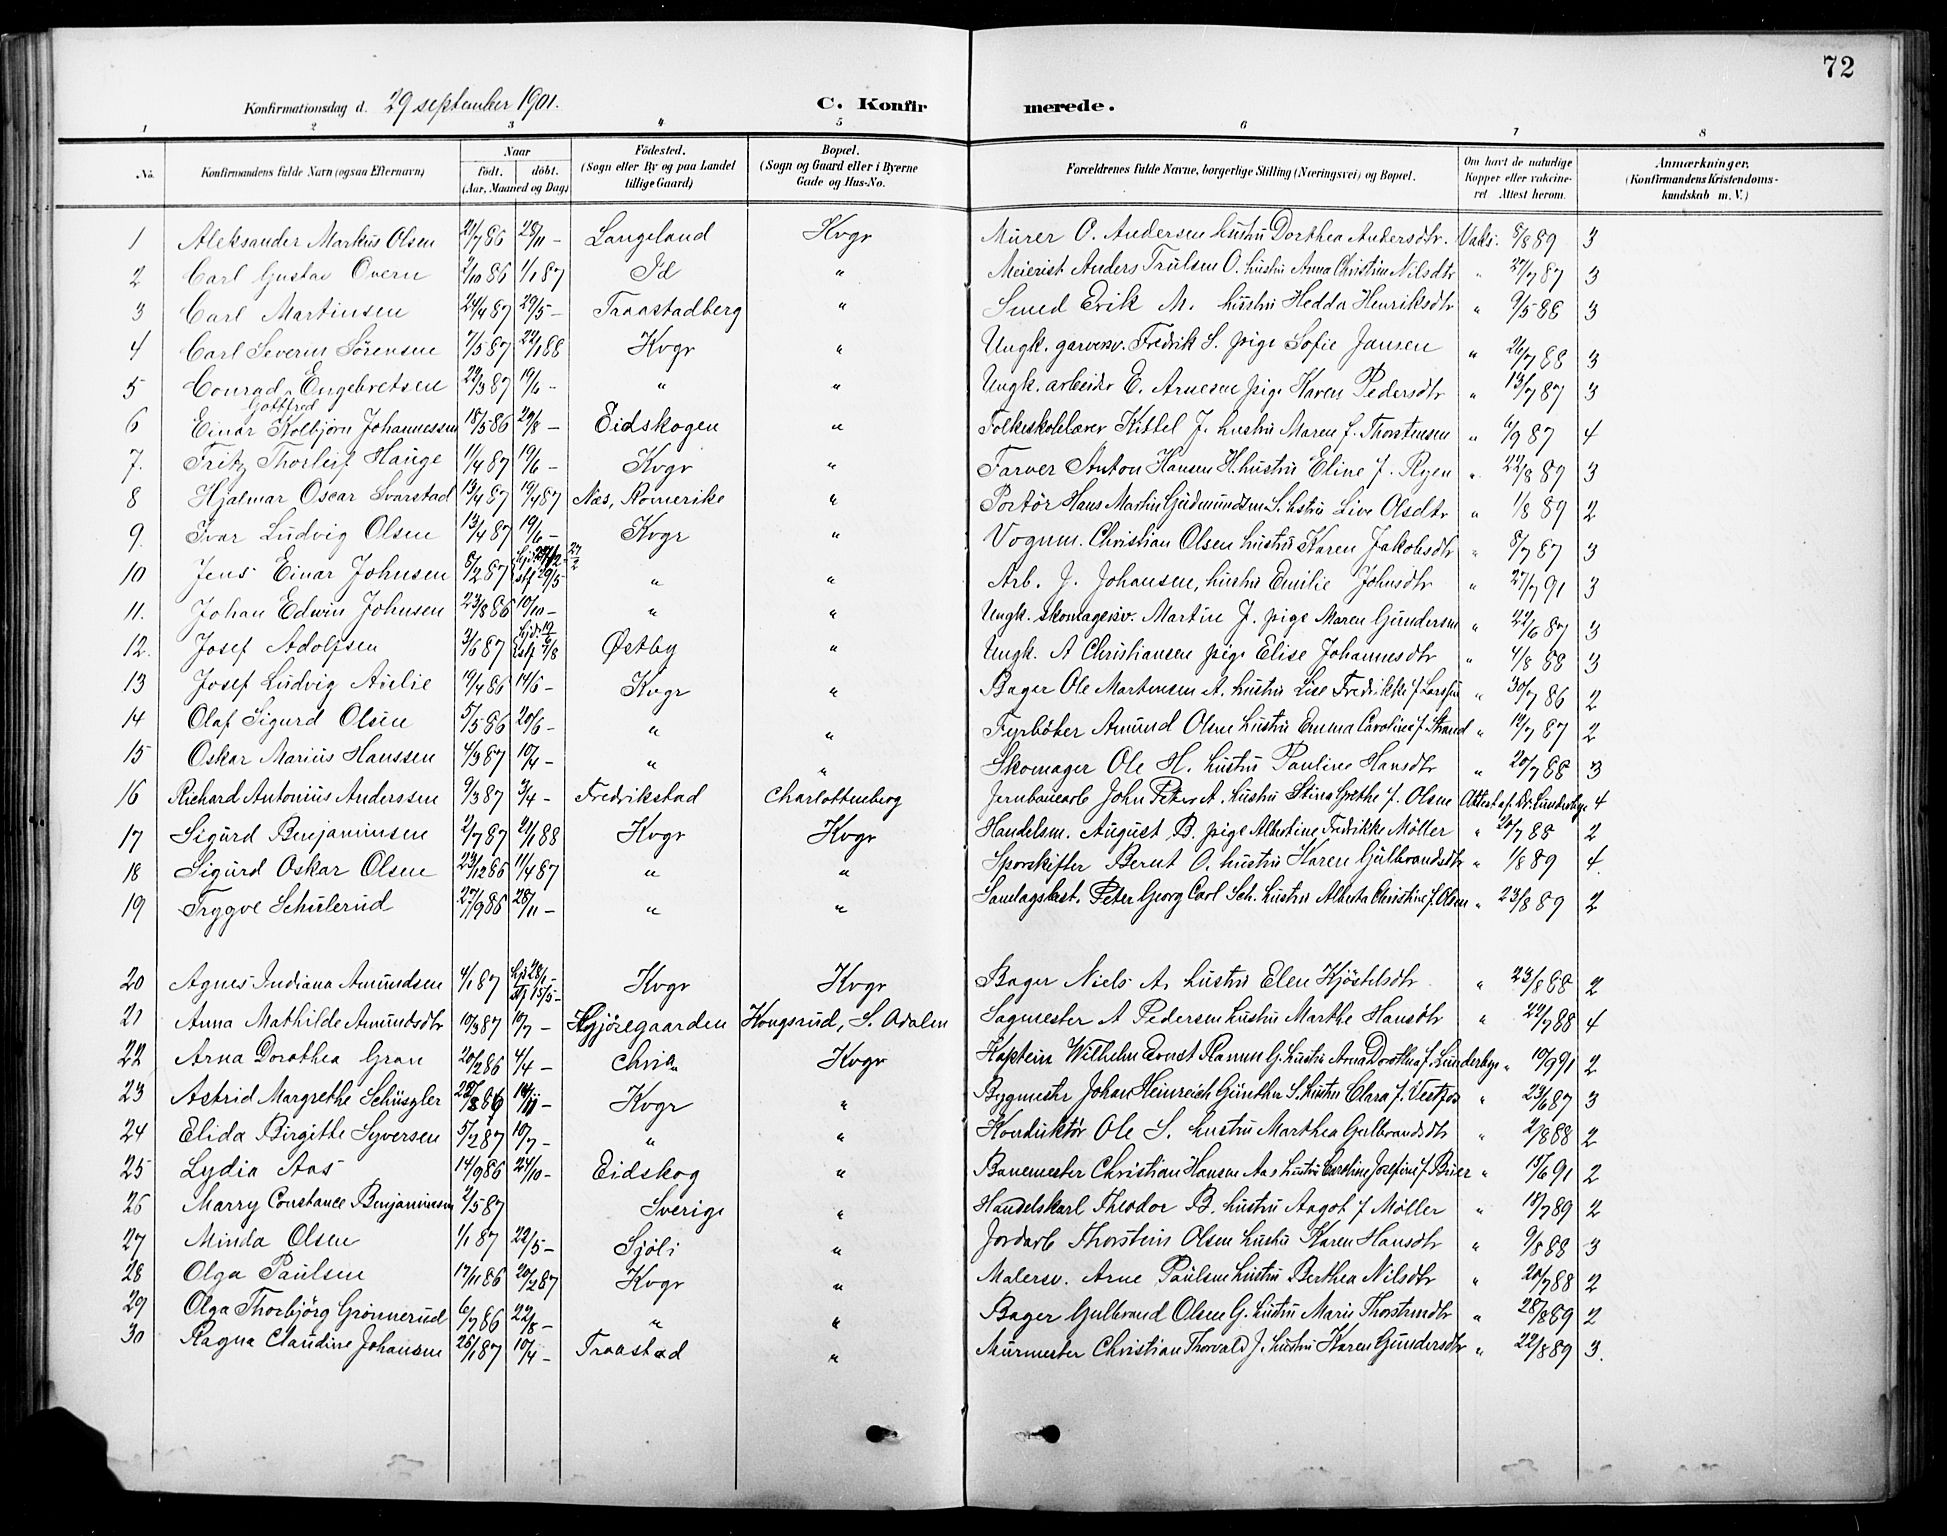 72
Konfirmationsdag d. 29 september 1901. C. Konfirmerede.
1 2 3 4 5 6 7 8
No. Konfirmandens fulde Navn (ogsaa Efternavn) Naar födt. döbt. (Aar, Maaned og Dag) Födested. (Sogn eller By og paa Landet tillige Gaard) Bopæl. (Sogn og Gaard eller i Byerne Gade og Hus-No. Forældrenes fulde Navne, borgerlige Stilling (Næringsvei) og Bopæl. Om havt de naturlige Kopper eller vakcineret Attest herom. Anmærkninger, (Konfirmandens Kristendomskundskab m. V.)
1 Aleksander Markus Olsen 21/7 86 28/11 – Langeland Kvgr Murer O. Andersen hustru Dorthea Andersdtr. Vaks. 8/8 89 3
2 Carl Gustav Overn 2/10 86 1/1 87 Id " Meierist Anders Trulsen O. hustru Anna Christine Nilsdtr " 27/7 87 3
3 Carl Martinsen 24/4 87 29/5 – Traastadberg " Smed Erik M. hustru Hedda Henriksdtr " 9/5 88 3
4 Carl Severin Sörensen 7/5 87 22/1 88 Kvgr " Ungk. garversv. Fredrik S. pige Sofie Jansen " 26/7 88 3
5 Conrad Engebretsen 22/3 87 19/6 – " " Ungk. arbeider E. Arnesen pige Karen Pedersdtr " 13/7 87 3
6 Einar Gottfred Kolbjörn Johannessen 18/5 86 29/8 – Eidskogen " Folkeskolelærer Kittel J. hustru Maren f. Thorstensen " 6/9 87 4
7. Fritz Thorleif Hauge 11/4 87 19/6 – Kvgr " Farver Anton Hansen H. hustru Eline f. Ryen " 22/8 87 3
8 Hjalmar Oscar Svarstad 13/4 87 19/4 87 Næs, Romerike " Portör Hans Martin Gudmundsen S. hstru Live Olsdtr " 1/8 89 2
9. Ivar Ludvig Olsen 13/4 87 19/6 – Kvgr " Vognm. Christian Olsen hustru Karen Jakobsdtr " 8/7 87 3
10 Jens Einar Johnsen 8/2 87 29/5 " " Arb. J. Johansen, hustru Emilie Johnsdtr " 27/7 91 3
11. Johan Edwin Johnsen 23/8 86 10/10 – " " Ungk. skomagersv. Martin J. pige Maren Gundersen " 22/6 87 3
12. Josef Adolfsen 3/6 87 hjd. 19/6 Østby " Ungk. A Christiansen pige Elise Johannesdtr " 4/8 88 3
13 Josef Ludvig Aulie 19/4 86 14/6 – Kvgr " Bager Ole Martensen A. hustru Lise Fredrikke f. Larsen " 30/7 86 2
14 Olaf Sigurd Olsen 5/5 86 20/6 – " " Fyrböter Amund Olsen hustru Emma Caroline f. Strand " 12/7 87 2
15 Oskar Marius Hanssen 4/3 87 10/4 – " " Skomager Ole H. hustru Pauline Hansdtr " 20/7 88 3
16 Richard Antonius Anderssen 9/3 87 3/4 – Fredrikstad Charlottenberg Jernbanearb John Peter A. hustru Stina Grethe f. Olsen Attest af Dr. Lunderbye 4
17 Sigurd Benjaminsen 2/7 87 29/1 88 Kvgr Kvgr Handelsm. August B. pige Albertine Fredrikke Möller " 20/7 88 2
18 Sigurd Oskar Olsen 23/12 86 11/4 87 " " Sporskifter Bernt O. hustru Karen Gulbrandsdtr " 1/8 89 4.
19 Trygve Schulerud 27/9 86 28/11 – " " Samlagsbest. Peter Georg Carl Sch. hustru Alberta Christine f. Olsen " 23/8 89 2
20 Agnes Indiana Amundsen 4/1 87 15/5 – Kvgr Kvgr Bager Niels A. hustru Elen Kjöstelsdtr " 23/8 88 2
21 Anna Mathilde Amundsdtr 10/3 87 10/7 – Skjöregaarden Kongsrud, S. Odalen Sagmester A Pedersen hustru Marthe Hansdtr " 22/7 88 4
22 Arna Dorothea Gran 20/2 86 4/4 – Chria Kvgr Kaptein Wilhelm Ernst Ramm G. hustru Arna Dorothea f. Lunderbye " 10/9 91 2
23 Astrid Margrethe Schüszler 22/8 86 14/11 – Kvgr " Bygmestr Johan Heinreich Günther S. hustru Clara f. Vestfos " 23/6 87 3
24 Elida Birgitte Syversen 5/2 87 10/7 – " " Konduktör Ole S. hustru Marthea Gulbrandsdtr " 2/8 88 2
25 Lydia Aas 14/9 86 24/10 – Eidskog " Banemester Christian Hansen Aas hustru Caroline Josefine f. Buer " 15/6 91 2
26 Marry Constance Benjaminsen 2/5 87 Sverige " Handelskarl Theodor B. hustru Aagot f Möller " 12/7 89 2
27 Minda Olsen 1/1 87 22/5 – Sjöli " Jordarb Thorstein Olsen hustru Karen Hansdtr " 9/8 88 3
28 Olga Paulsen 17/11 86 20/2 87 Kvgr " Malersv. Arne Paulsen hustru Berthea Nilsdtr " 20/7 88 2
29 Olga Thorbjörg Grönnerud 6/7 86 22/8 – " " Bager Gulbrand Olsen G. hustru Marie Thorstensdtr " 28/8 89 2
30 Ragna Claudine Johansen 26/1 87 10/4 – Traastad " Murmester Christian Thorvald J. hustru Karen Gundersdtr " 22/8 89 3.